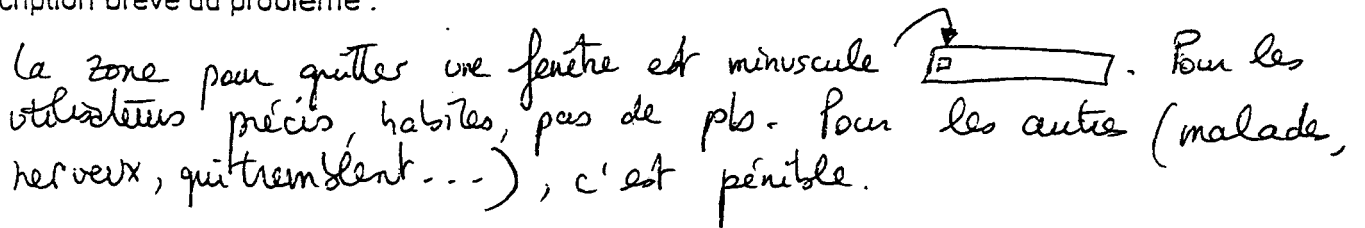 cription brève du problème :
La zone pour quitter une fenêtre est minuscule . Pour les
utilisateurs précis, habiles, pas de pbs. Pour les autres (malades,
nerveux, qui tremblent...), c'est pénible.